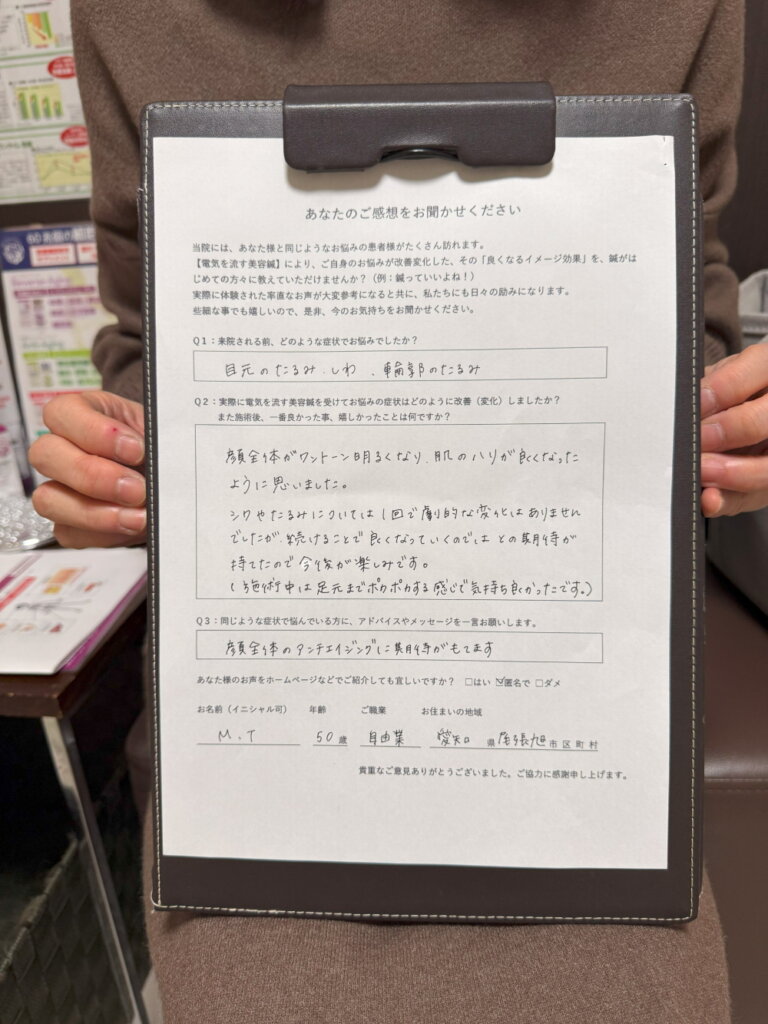 あなたのご感想をお聞かせください
当院には、あなた様と同じようなお悩みの患者様がたくさん訪れます。
【電気を流す美容鍼】により、ご自身のお悩みが改善変化した、その「良くなるイメージ効果」を、鍼がは
じめての方々に教えていただけませんか？（例：鍼っていいよね！）
実際に体験された率直なお声が大変参考になると共に、私たちにも日々の励みになります。
些細な事でも嬉しいので、是非、今のお気持ちをお聞かせください。
Q1：来院される前、どのような症状でお悩みでしたか？
目元のたるみ、しわ、輪郭のたるみ
Q2：実際に電気を流す美容鍼を受けてお悩みの症状はどのように改善（変化）しましたか？
また施術後、一番良かった事、嬉しかったことは何ですか？
顔全体がワントーン明るくなり、肌のハリが良くなった
ように思いました。
シワやたるみについては1回で劇的な変化はありません
でしたが、続けることで良くなっていくのではとの期待が
持てたので今後が楽しみです。
(施術中は足元までポカポカする感じで気持ち良かったです。)
Q3：同じような症状で悩んでいる方に、アドバイスやメッセージを一言お願いします。
顔全体のアンチエイジングに期待がもてます
あなた様のお声をホームページなどでご紹介しても宜しいですか？ □はい ☑匿名で □ダメ
お名前（イニシャル可） 年齢 ご職業 お住まいの地域
M.T 50歳 自由業 愛知県尾張旭市区町村
貴重なご意見ありがとうございました。ご協力に感謝申し上げます。